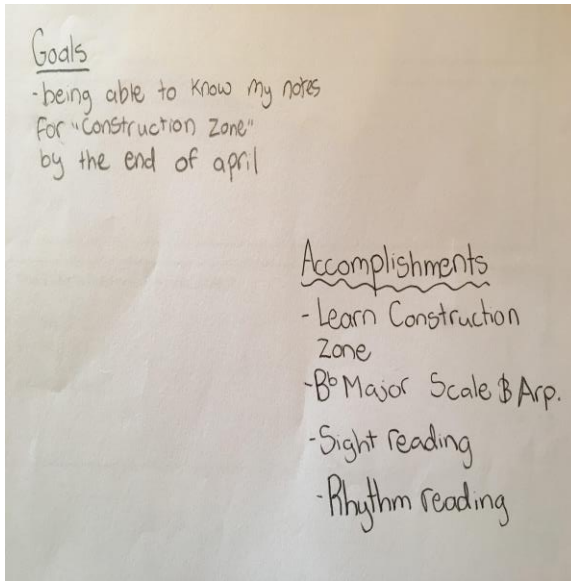 Goals
-being able to know my notes
for "Construction Zone"
by the end of april
Accomplishments
- Learn Construction
Zone
-Bb Major Scale & Arp.
-Sight reading
-Rhythm reading